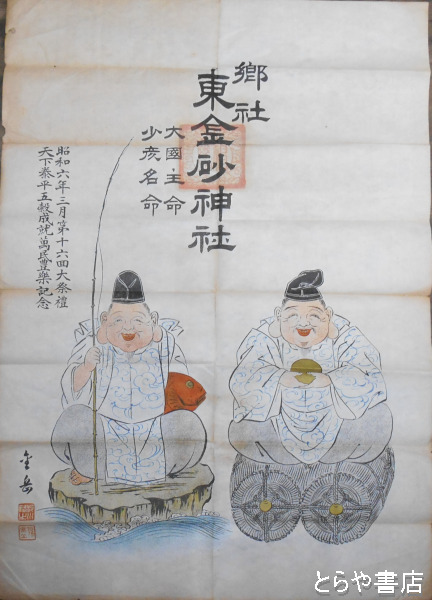 鄉社
東金砂神社
大國主命
少彦名命
昭和六年三月第十六回大祭禮
天下泰平五穀成就萬民豊樂記念
金岳
とらや書店